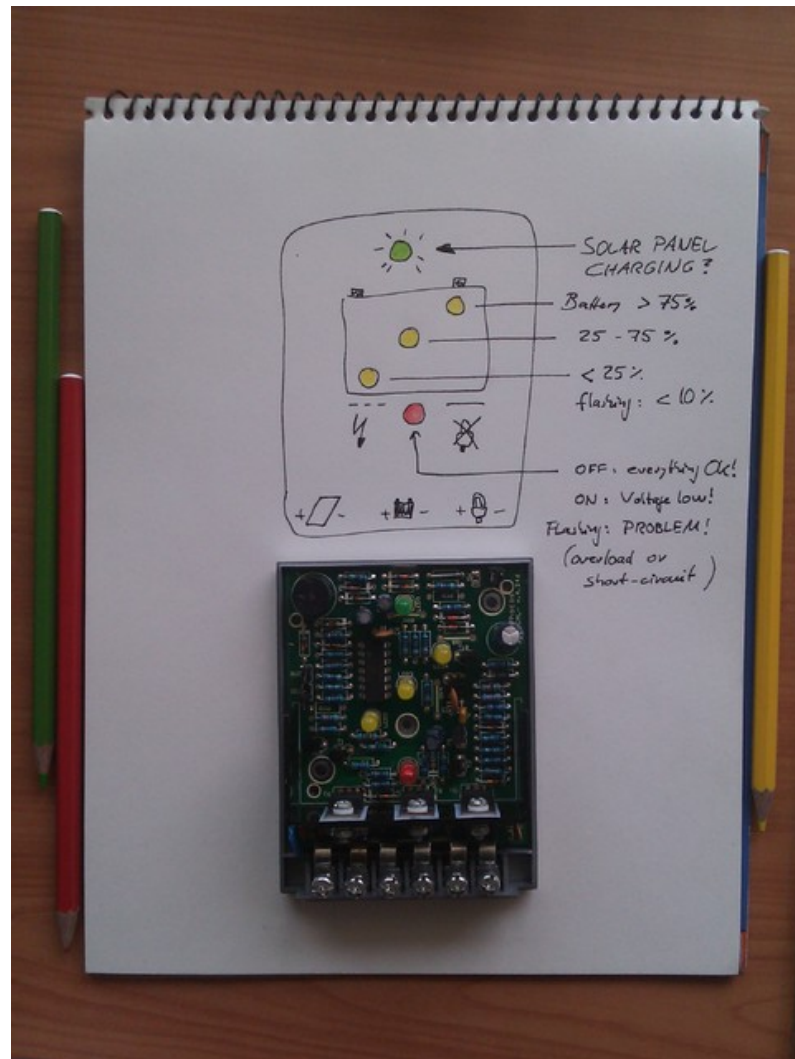 SOLAR PANEL
CHARGING?
Battery > 75%
25 - 75 %
< 25%
flashing: < 10%
OFF: everything Ok!
ON: Voltage low!
Flashing: PROBLEM!
(overload or
short-circuit)
+ - + - + -